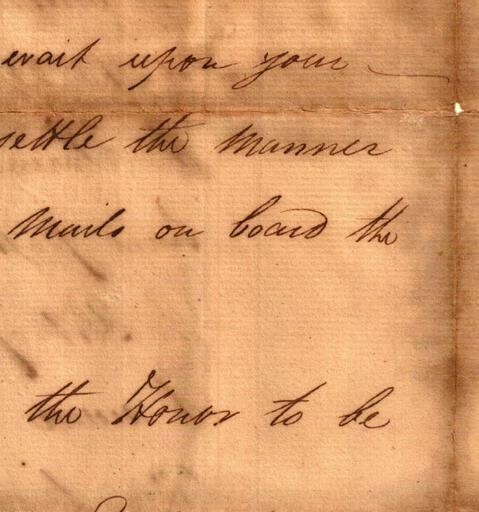 wait upon your
settle the Manner
Mails on board the
the Honor to be